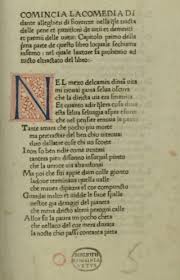 COMINCIA LACOMEDIA DI
dante alleghieri di fiorenze nella q̃le tracta
delle pene et punitioni de uitii et demeriti
et premii delle uirtu: Capitolo primo della
p̃ma parte de questo libro loquale sechiama
inferno: nel quale lautore fa prohemio ad
tucto eltractato del libro:
NEL mezo delcamin dinr̃a uita
mi trouai puna selua oscura
che la diricta uia era smarrita
Et quanto adir q̃lera cosa dura
esta selua seluagia aspra eforte
che nel pensier renoua la paura
Tante amara che pocho piu morte
ma pertractar del ben chio uitrouai
diro dellaltre cose chi uo scorte
I non so ben ridir come uentrai
tantera pien disonno insuquel punto
che la uerace uia abandonai
Ma poi che fui appie dum colle gionto
ladoue terminaua quella ualle
che mauea dipaura el cor compuncto
Guardai in alto et uidde le sue spalle
uestite gia deraggi del pianeta
che mena dricto altrui per ogni calle
Allor fu la paura un pocho cheta
che nellaco del cor mera durata
la nocte chio passai contanta pieta